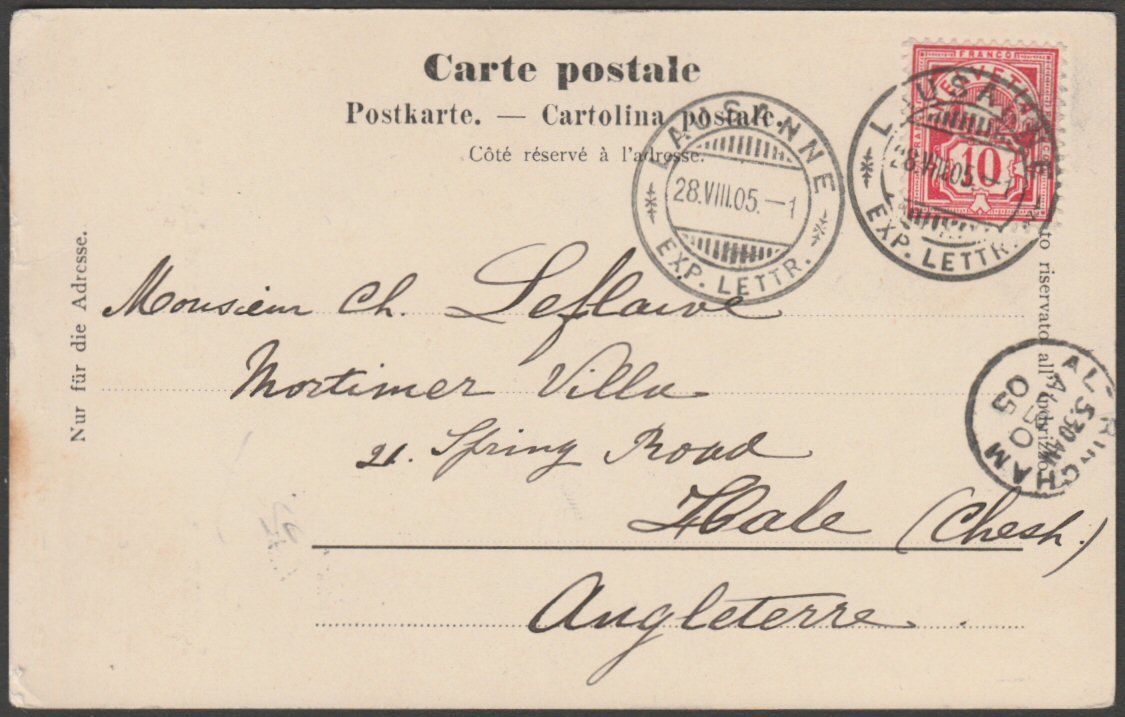 Carte postale
Postkarte. — Cartolina postale.
Côté réservé à l'adresse.
LAUSANNE
28.VIII.05.—1
EXP. LETTR.
FRANCO
HELVETIA
10
LAUSANNE
28.VIII.05.—1
EXP. LETTR.
Nur für die Adresse.
to riservato all'indirizzo.
ALTRINCHAM
5.30 AM
AU 30
05
Monsieur Ch. Leflaive
Mortimer Villa
21. Spring Road
Hale (Chesh.)
Angleterre.